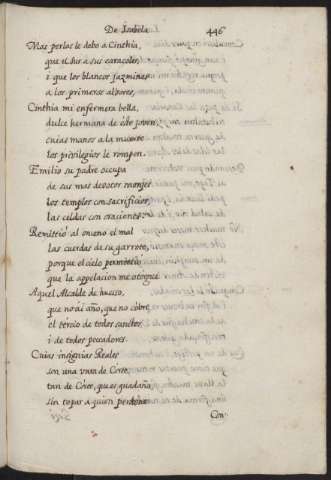 De Isabela.
446
Mas perlas le debo a Cinthia,
que el Sur a sus caracoles,
i que los blancos jazmines
a los primeros albores,
Cinthia mi enfermera bella,
dulce hermana de este joven,
cuias manos a la muerte
los privilegios le rompen.
Emilio su padre ocupa
de sus mas devotos monjes
los templos con sacrificios,
las celdas con oraciones.
Remittiò al omeno el mal
las cuerdas de su garrote,
porque el cielo permitiò
que la appelacion me otorgue
Aquel Alcalde de huesso,
que no ai año, que no cobre
el tercio de todos sanctos
i de todos peccadores.
Cuias insignias Reales
son una vara de Ciree,
tan de Ciree, que es guadaña
sin topar a quien perdone
Con-